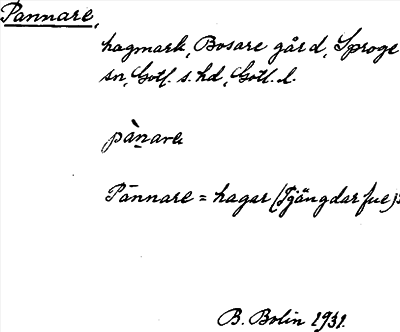 Pannare,
hagmark, Bosare gård, Sproge
sn, Gotl. s. hd, Gotl. l.
pànare
Pannare = hagar
B. Bolin 1931.